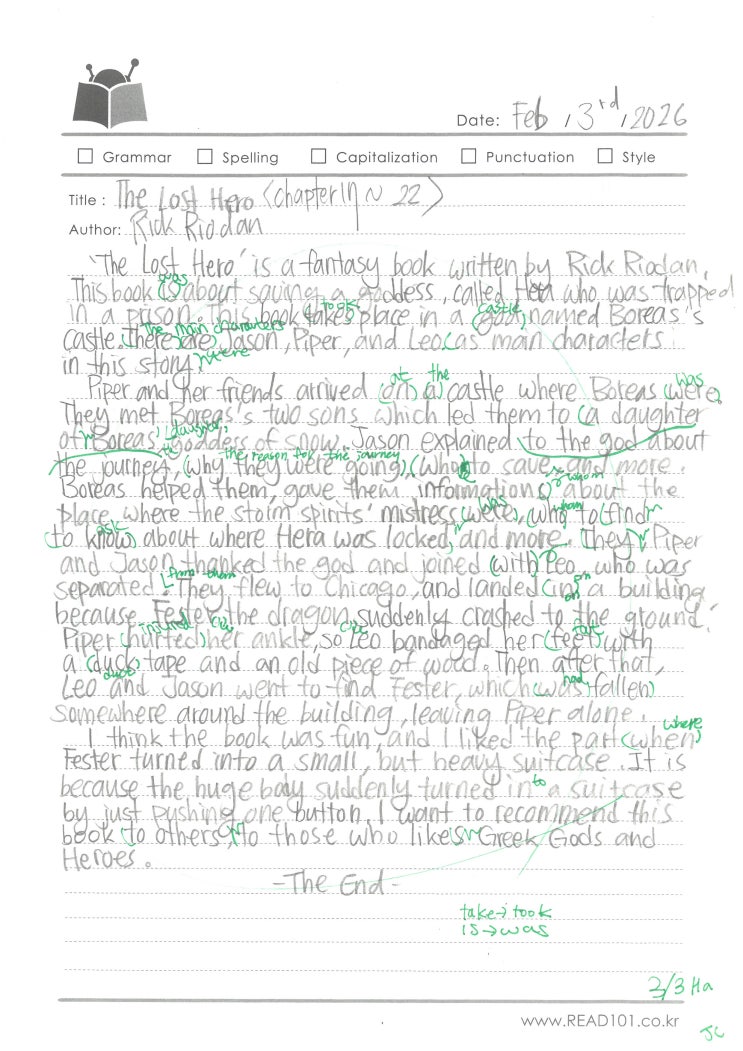 Date: Feb, 3rd, 2026
Grammar Spelling Capitalization Punctuation Style
Title: The Lost Hero <chapter 19 ~ 22>
Author: Rick Riodan
'The Lost Hero' is a fantasy book written by Rick Riodan.
was
This book is about saving a goddess, called Hera who was trapped
took castle
in a prison. This book takes place in a god, named Boreas's
The main characters
castle. There are Jason, Piper, and Leo as main characters
were
in this story.
at the was
Piper and her friends arrived on a castle where Boreas were.
They met Boreas's two sons which led them to a daughter
daughter, the
of Boreas, goddess of snow. Jason explained to the god about
the reason for the journey
the journey, why they were going, who to save, and more.
whom
Boreas helped them, gave them informations about the
was whom
place where the storm spirits' mistress were, who to find
ask
to know about where Hera was locked, and more. They, Piper
and Jason thanked the god and joined with Leo, who was
from them
separated. They flew to Chicago, and landed in a building
on on
because Fester the dragon suddenly crashed to the ground.
injured foot
Piper hurted her ankle, so Leo bandaged her feet with
duct
a duck tape and an old piece of wood. Then after that,
had
Leo and Jason went to find Fester, which was fallen
somewhere around the building, leaving Piper alone.
where
I think the book was fun, and I liked the part when
Fester turned into a small, but heavy suitcase. It is
to
because the huge body suddenly turned in a suitcase
by just pushing one button. I want to recommend this
book to others, to those who likes Greek Gods and
Heroes.
-The End-
take→took
is→was
2/3 Ha
www.READ101.co.kr
JC